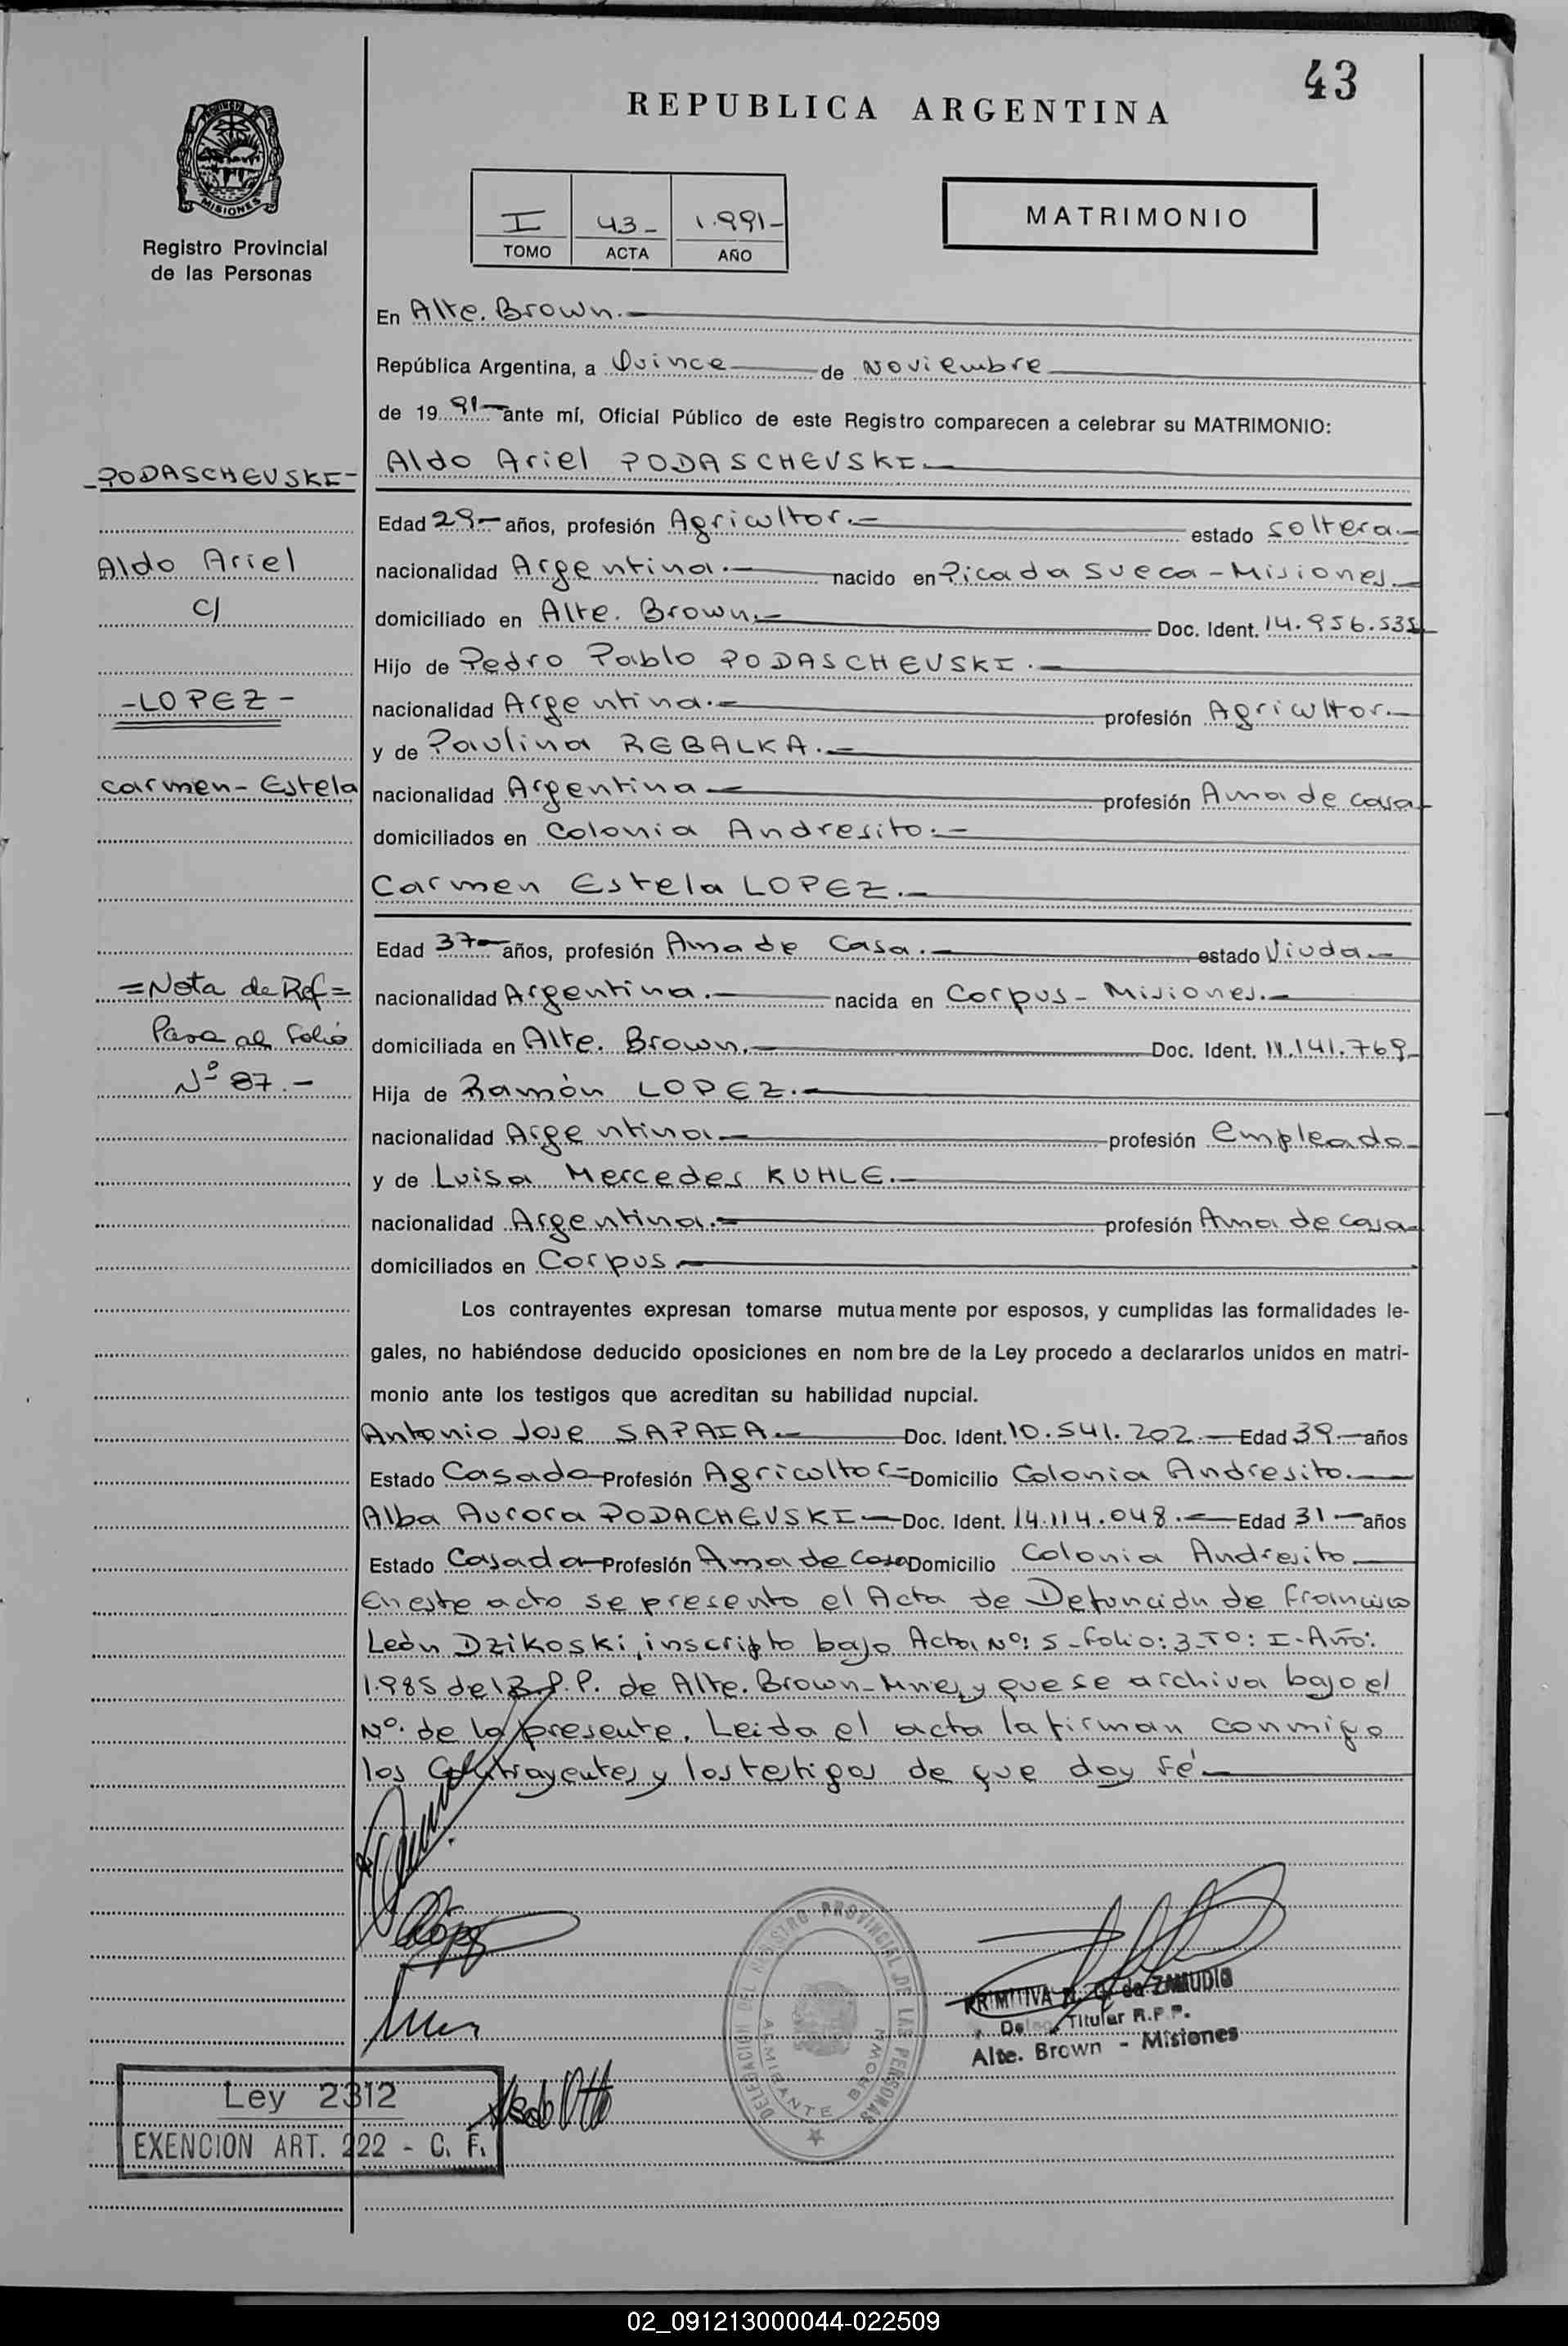 43
REPUBLICA ARGENTINA
MISIONES
Registro Provincial
de las Personas
I 43- 1.991-
TOMO ACTA AÑO
MATRIMONIO
En Alte. Brown.-
República Argentina, a Quince de Noviembre
de 19 91- ante mí, Oficial Público de este Registro comparecen a celebrar su MATRIMONIO:
-PODASCHEVSKI-
Aldo Ariel PODASCHEVSKI.-
Edad 29- años, profesión Agricultor.- estado soltera.-
Aldo Ariel
nacionalidad Argentina.- nacido en Picada Sueca - Misiones.-
c/
domiciliado en Alte. Brown.- Doc. Ident. 14.956.535-
Hijo de Pedro Pablo PODASCHEVSKI.-
-LOPEZ-
nacionalidad Argentina.- profesión Agricultor.-
y de Paulina REBALKA.-
Carmen-Estela
nacionalidad Argentina- profesión Ama de casa-
domiciliados en Colonia Andresito.-
Carmen Estela LOPEZ.-
Edad 37- años, profesión Ama de Casa.- estado Viuda.-
=Nota de Ref=
nacionalidad Argentina.- nacida en Corpus - Misiones.-
Pasa al Folio
domiciliada en Alte. Brown.- Doc. Ident. 11.141.769-
Nº 87.-
Hija de Ramón LOPEZ.-
nacionalidad Argentina- profesión Empleado-
y de Luisa Mercedes KUHLE.-
nacionalidad Argentina.- profesión Ama de casa-
domiciliados en Corpus.-
Los contrayentes expresan tomarse mutuamente por esposos, y cumplidas las formalidades le-
gales, no habiéndose deducido oposiciones en nombre de la Ley procedo a declararlos unidos en matri-
monio ante los testigos que acreditan su habilidad nupcial.
Antonio Jose SAPAIA.- Doc. Ident. 10.541.202.- Edad 39.- años
Estado Casado- Profesión Agricultor= Domicilio Colonia Andresito.-
Alba Aurora PODACHEVSKI- Doc. Ident. 14.114.048.- Edad 31.- años
Estado Casada- Profesión Ama de Casa Domicilio Colonia Andresito.-
En este acto se presento el Acta de Defunción de Francisco
León Dzikoski, inscripto bajo Acta Nº: 5-Folio: 3-Tº: I-Año:
1.985 del R.P.P. de Alte. Brown-Mnes, y que se archiva bajo el
Nº. de la presente. Leida el acta la firman conmigo
los Contrayentes y los testigos de que doy Fé.-
López
DELEGACION DEL REGISTRO PROVINCIAL DE LAS PERSONAS
ALMIRANTE BROWN
PRIMITIVA de ZAMUDIO
Titular R.P.P.
Alte. Brown - Misiones
Ley 2312
EXENCION ART. 222 - C. F.
02_091213000044-022509